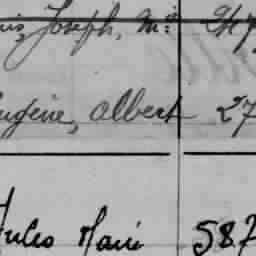 Joseph, M.
Eugène, Albert 27
Jules Marie 587